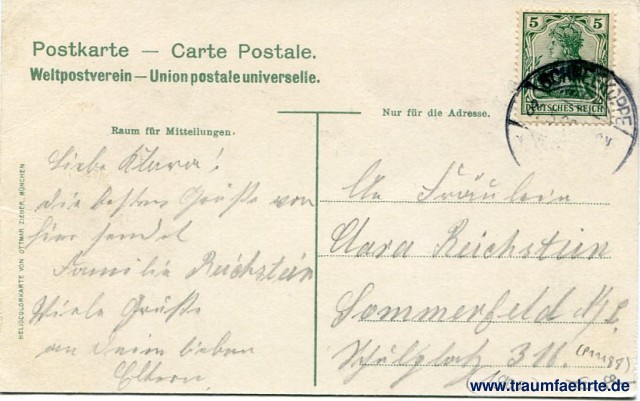 Postkarte — Carte Postale.
Weltpostverein — Union postale universelle.
5 5
DEUTSCHES REICH
SCHNEEKOPPE
Nur für die Adresse.
Raum für Mitteilungen.
HELIOCOLORKARTE VON OTTMAR ZIEHER, MÜNCHEN
Liebe Klara!
die besten Grüße von
hier sendet
Familie Reichstein
Viele Grüße
an Deine lieben
Eltern
An Fräulein
Clara Reichstein
Sommerfeld
Schulplatz 316.
www.traumfaehrte.de